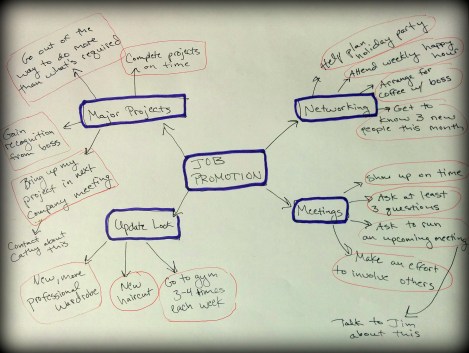 Go out of the
way to do more
than what's required
Complete projects
on time
Major Projects
Gain
recognition
from boss
Bring up my
project in next
company meeting
Contact
Cathy about
this
Help plan
holiday party
Attend weekly happy
hour
Arrange for
coffee w/ boss
Networking
Get to
know 3 new
people this month
JOB
PROMOTION
Update Look
New, more
professional
wardrobe
New
haircut
Go to gym
3-4 times
each week
Meetings
Show up on time
Ask at least
3 questions
Ask to run
an upcoming meeting
Make an effort
to involve others
Talk to Jim
about this